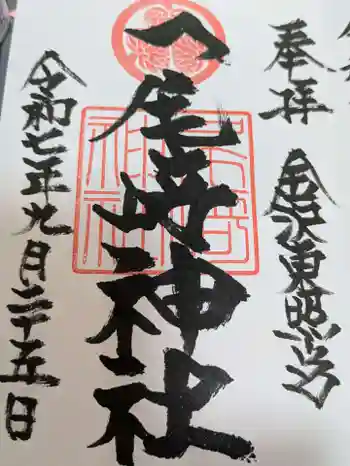 奉拝
金沢東照宮
尾崎神社
令和七年九月二十五日